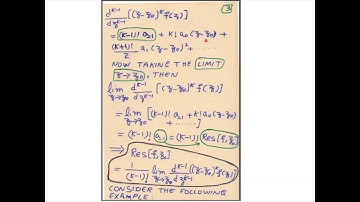 ③
d^{k-1}/dz^{k-1} [(z-z₀)^k f(z)]
= (k-1)! a₋₁ + k! a₀(z-z₀) +
(k+1)!/2 a₁(z-z₀)² + ......
NOW TAKING THE LIMIT
z→z₀, THEN
lim z→z₀ d^{k-1}/dz^{k-1} [(z-z₀)^k f(z)]
= lim z→z₀ [(k-1)! a₋₁ + k! a₀(z-z₀)
+ ......]
= (k-1)! a₋₁ = (k-1)! Res[f,z₀]
⟹ Res[f,z₀]
= 1/(k-1)! lim z→z₀ d^{k-1}/dz^{k-1} [(z-z₀)^k f(z)]
CONSIDER THE FOLLOWING
EXAMPLE: